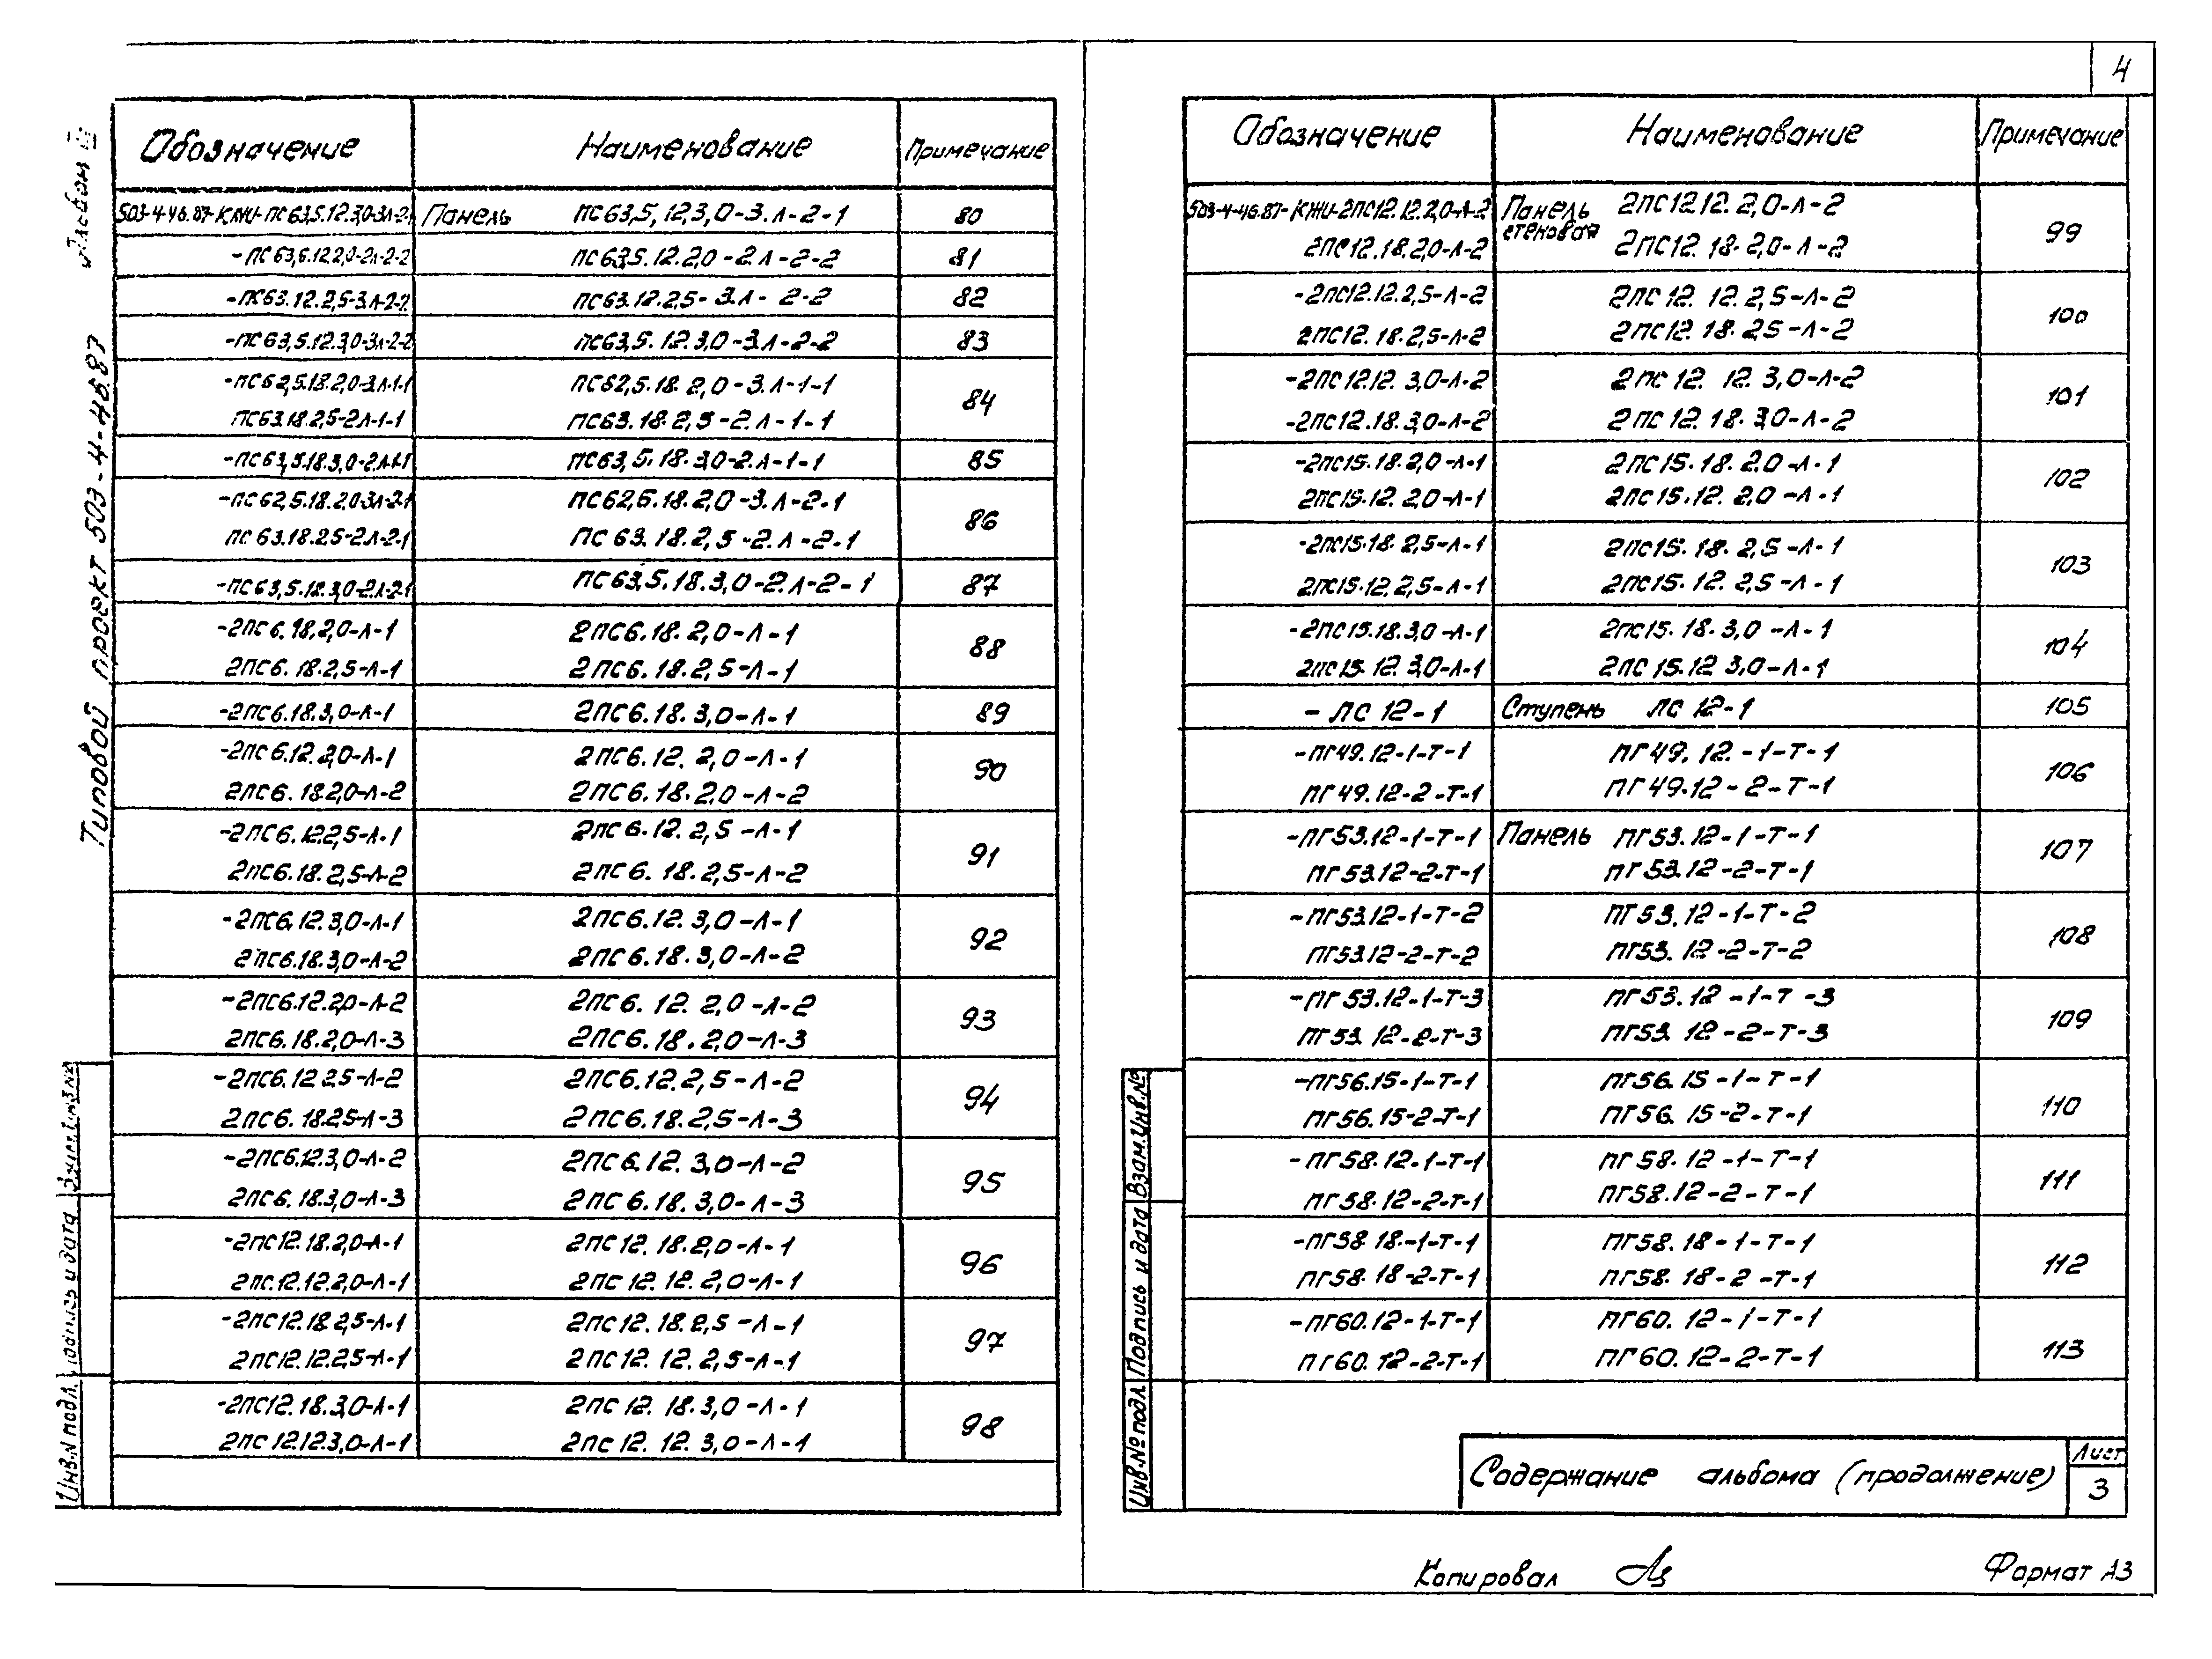 4
Типовой проект 503-4-46.87 Альбом
Обозначение Наименование Примечание
503-4-46.87-КЖИ-ПС63,5.12.3,0-3Л-2-1 Панель ПС63,5,12,3,0-3.Л-2-1 80
-ПС63,5.12.2,0-2Л-2-2 ПС63,5.12.2,0-2Л-2-2 81
-ПС63.12.2,5-3Л-2-2 ПС63.12.2,5-3.Л-2-2 82
-ПС63,5.12.3,0-3Л-2-2 ПС63,5.12.3,0-3.Л-2-2 83
-ПС62,5.18.2,0-3Л-1-1 ПС62,5.18.2,0-3.Л-1-1 84
ПС63.18.2,5-2Л-1-1 ПС63.18.2,5-2.Л-1-1
-ПС63,5.18.3,0-2Л-1-1 ПС63,5.18.3,0-2.Л-1-1 85
-ПС62,5.18.2,0-3Л-2-1 ПС62,5.18.2,0-3.Л-2-1 86
ПС63.18.2,5-2Л-2-1 ПС63.18.2,5-2.Л-2-1
-ПС63,5.18.3,0-2Л-2-1 ПС63,5.18.3,0-2.Л-2-1 87
-2ПС6.18.2,0-Л-1 2ПС6.18.2,0-Л-1 88
2ПС6.18.2,5-Л-1 2ПС6.18.2,5-Л-1
-2ПС6.18.3,0-Л-1 2ПС6.18.3,0-Л-1 89
-2ПС6.12.2,0-Л-1 2ПС6.12.2,0-Л-1 90
2ПС6.18.2,0-Л-2 2ПС6.18.2,0-Л-2
-2ПС6.12.2,5-Л-1 2ПС6.12.2,5-Л-1 91
2ПС6.18.2,5-Л-2 2ПС6.18.2,5-Л-2
-2ПС6.12.3,0-Л-1 2ПС6.12.3,0-Л-1 92
2ПС6.18.3,0-Л-2 2ПС6.18.3,0-Л-2
-2ПС6.12.2,0-Л-2 2ПС6.12.2,0-Л-2 93
2ПС6.18.2,0-Л-3 2ПС6.18.2,0-Л-3
-2ПС6.12.2,5-Л-2 2ПС6.12.2,5-Л-2 94
2ПС6.18.2,5-Л-3 2ПС6.18.2,5-Л-3
-2ПС6.12.3,0-Л-2 2ПС6.12.3,0-Л-2 95
2ПС6.18.3,0-Л-3 2ПС6.18.3,0-Л-3
-2ПС12.18.2,0-Л-1 2ПС12.18.2,0-Л-1 96
2ПС.12.12.2,0-Л-1 2ПС12.12.2,0-Л-1
-2ПС12.18.2,5-Л-1 2ПС12.18.2,5-Л-1 97
2ПС12.12.2,5-Л-1 2ПС12.12.2,5-Л-1
-2ПС12.18.3,0-Л-1 2ПС12.18.3,0-Л-1 98
2ПС12.12.3,0-Л-1 2ПС12.12.3,0-Л-1
Инв.N подл. Подпись и дата
Обозначение Наименование Примечание
503-4-46.87-КЖИ-2ПС12.12.2,0-Л-2 Панель 2ПС12.12.2,0-Л-2 99
2ПС12.18.2,0-Л-2 стеновая 2ПС12.18.2,0-Л-2
-2ПС12.12.2,5-Л-2 2ПС12.12.2,5-Л-2 100
2ПС12.18.2,5-Л-2 2ПС12.18.2,5-Л-2
-2ПС12.12.3,0-Л-2 2ПС12.12.3,0-Л-2 101
-2ПС12.18.3,0-Л-2 2ПС12.18.3,0-Л-2
-2ПС15.18.2,0-Л-1 2ПС15.18.2,0-Л-1 102
2ПС15.12.2,0-Л-1 2ПС15.12.2,0-Л-1
-2ПС15.18.2,5-Л-1 2ПС15.18.2,5-Л-1 103
2ПС15.12.2,5-Л-1 2ПС15.12.2,5-Л-1
-2ПС15.18.3,0-Л-1 2ПС15.18.3,0-Л-1 104
2ПС15.12.3,0-Л-1 2ПС15.12 3,0-Л-1
-ЛС 12-1 Ступень ЛС 12-1 105
-ПГ49.12-1-Т-1 ПГ49.12.-1-Т-1 106
ПГ49.12-2-Т-1 ПГ49.12-2-Т-1
-ПГ53.12-1-Т-1 Панель ПГ53.12-1-Т-1 107
ПГ53.12-2-Т-1 ПГ53.12-2-Т-1
-ПГ53.12-1-Т-2 ПГ53.12-1-Т-2 108
ПГ53.12-2-Т-2 ПГ53.12-2-Т-2
-ПГ53.12-1-Т-3 ПГ53.12-1-Т-3 109
ПГ53.12-2-Т-3 ПГ53.12-2-Т-3
-ПГ56.15-1-Т-1 ПГ56.15-1-Т-1 110
ПГ56.15-2-Т-1 ПГ56.15-2-Т-1
-ПГ58.12-1-Т-1 ПГ58.12-1-Т-1 111
ПГ58.12-2-Т-1 ПГ58.12-2-Т-1
-ПГ58.18-1-Т-1 ПГ58.18-1-Т-1 112
ПГ58.18-2-Т-1 ПГ58.18-2-Т-1
-ПГ60.12-1-Т-1 ПГ60.12-1-Т-1 113
ПГ60.12-2-Т-1 ПГ60.12-2-Т-1
Инв.№ подл. Подпись и дата Взам.Инв.№
Содержание альбома (продолжение)
Лист
3
Копировал
Формат А3